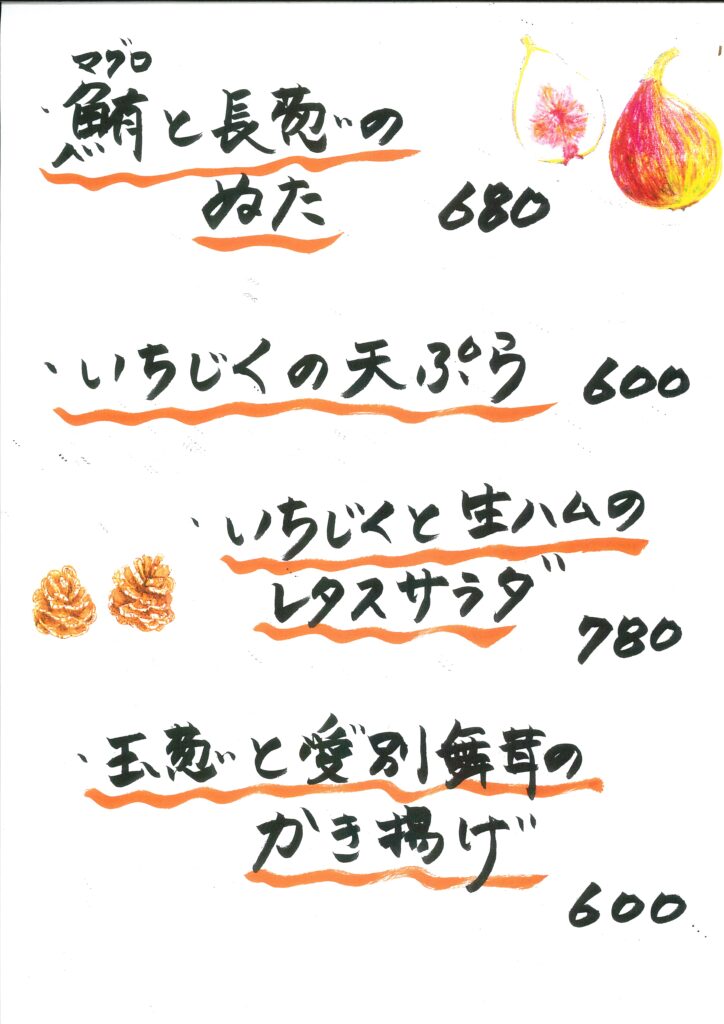 マグロ
・鮪と長葱の
ぬた 680
・いちじくの天ぷら 600
・いちじくと生ハムの
レタスサラダ
780
・玉葱と愛別舞茸の
かき揚げ
600